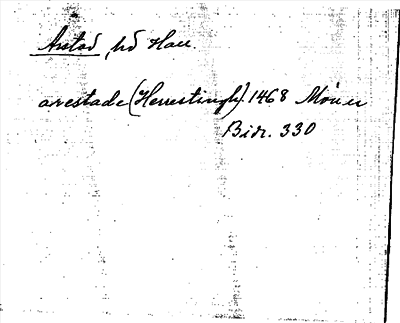 Arstad, hd Hall.
arvestade (Herrestingh) 1468 Möller
Bidr. 330